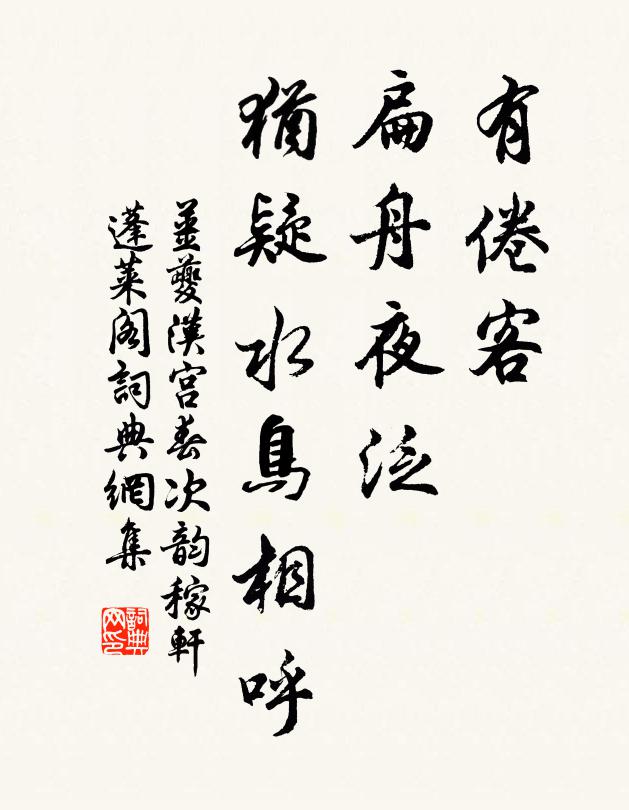 有倦客
扁舟夜泛
猶疑水鳥相呼
姜夔漢宮春次韵稼軒
蓬萊閣詞典網集
詞典网印